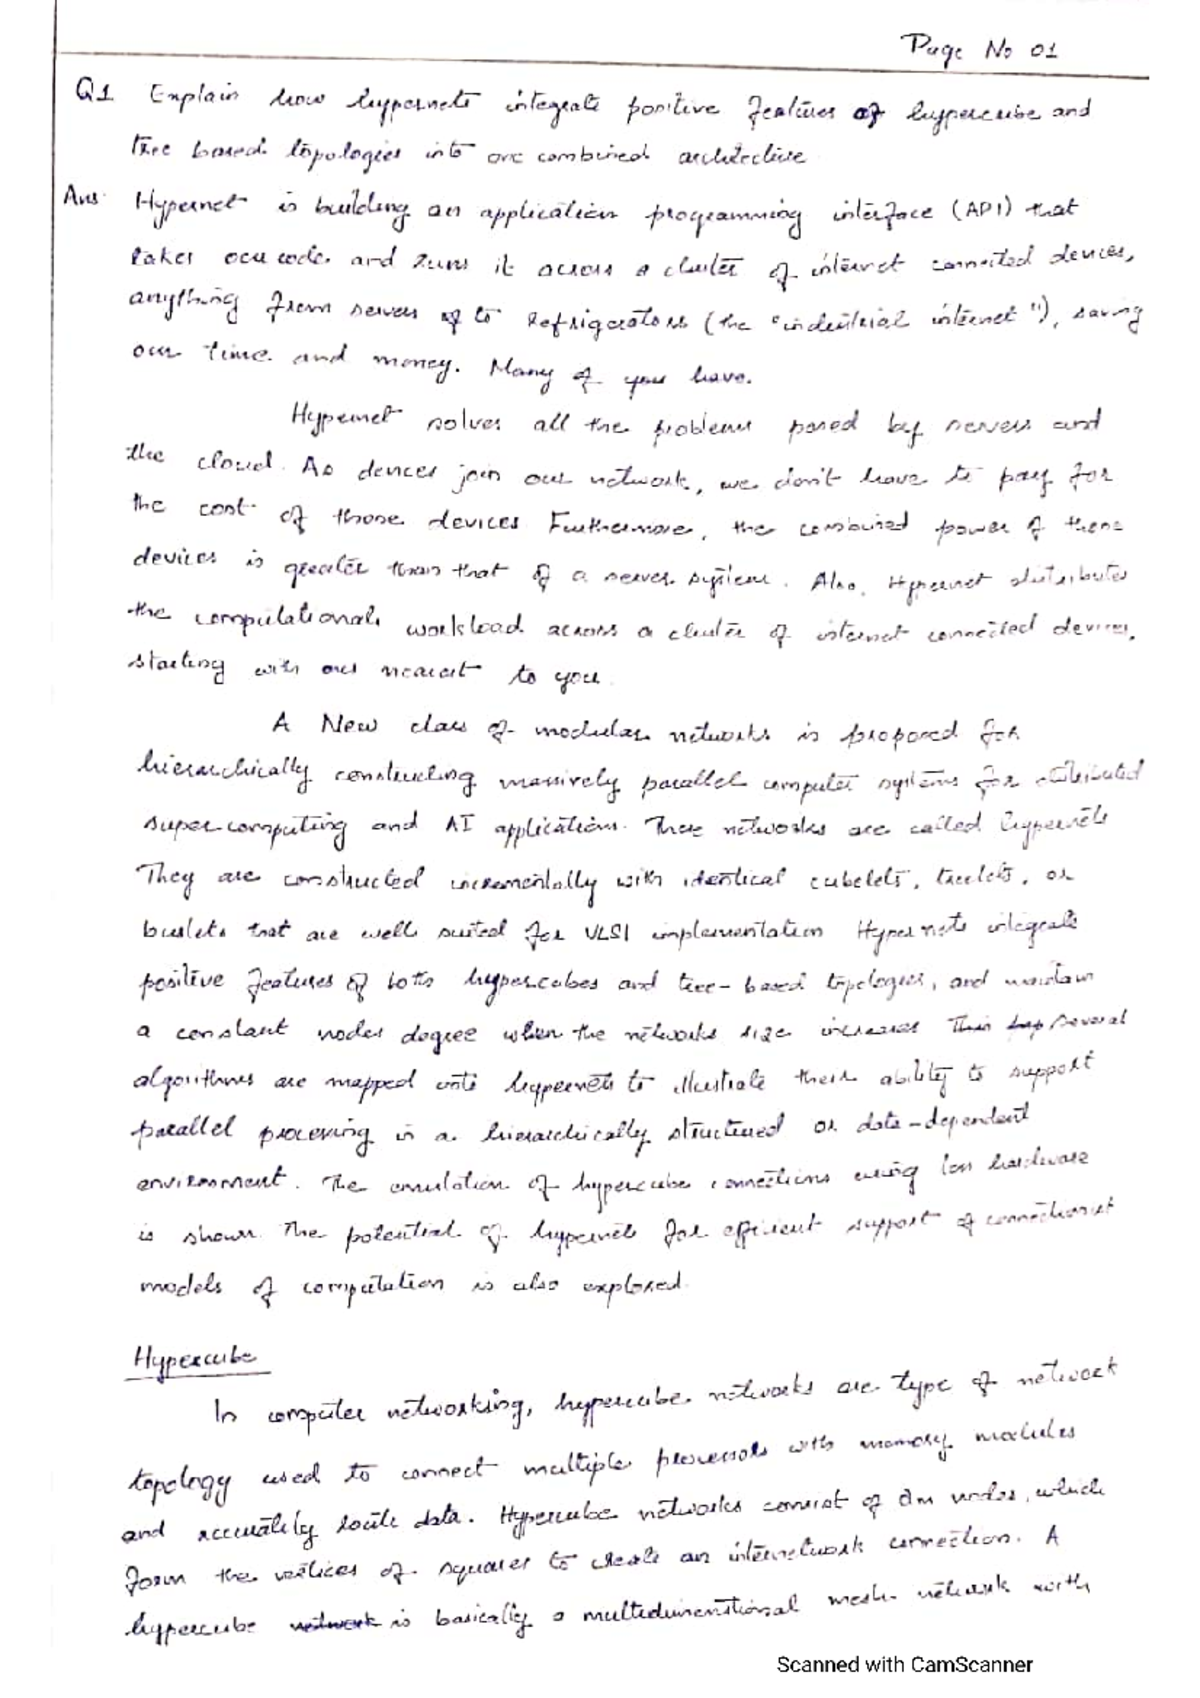 Page No 01
Q1 Explain how hypernets integrate positive features of hypercube and
tree based topologies into one combined architective
Ans. Hypernet is building an application programming interface (API) that
takes our code and runs it across a cluster of internet connected devices,
anything from servers of to Refrigerators (the "industrial internet"), saving
our time and money. Many of you have.
Hypernet solves all the problems posed by servers and
the cloud. As devices join our network, we don't have to pay for
the cost of those devices Furthermore, the combined power of these
devices is greater than that of a server system. Also, Hypernet distributes
the computational workload across a cluster of internet connected devices,
starting with ones nearest to you.
A New class of modular networks is proposed for
hierarchically constructing massively parallel computer systems for distributed
supercomputing and AI applications. These networks are called hypernets
They are constructed incrementally with identical cubelets, treelets, or
buslets that are well suited for VLSI implementation Hypernets integrate
positive features of both hypercubes and tree-based topologies, and maintain
a constant nodes degree when the networks size increases This several
algorithms are mapped onto hypernets to illustrate their ability to support
parallel processing in a hierarchically structured or data-dependent
environment. The emulation of hypercube connections using less hardware
is shown. The potential of hypernets for efficient support of connectionist
models of computation is also explored.
Hypercube
In computer networking, hypercube networks are type of network
topology used to connect multiple processors with memory modules
and accurately route data. Hypercube networks consist of 2m nodes, which
form the vertices of squares to create an internetwork connection. A
hypercube network is basically a multidimenstional mesh network with
Scanned with CamScanner